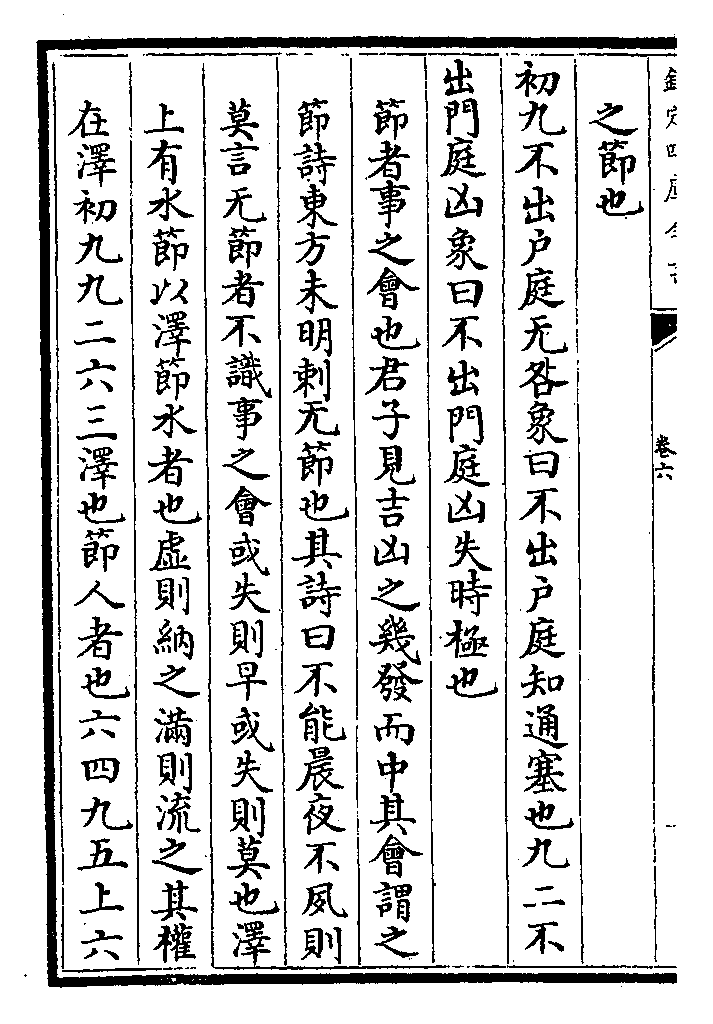 欽定四庫全書
卷六
之節也
初九不出戶庭无咎象曰不出戶庭知通塞也九二不
出門庭凶象曰不出門庭凶失時極也
節者事之會也君子見吉凶之幾發而中其會謂之
節詩東方未明刺无節也其詩曰不能晨夜不夙則
莫言无節者不識事之會或失則早或失則莫也澤
上有水節以澤節水者也虛則納之滿則流之其權
在澤初九九二六三澤也節人者也六四九五上六